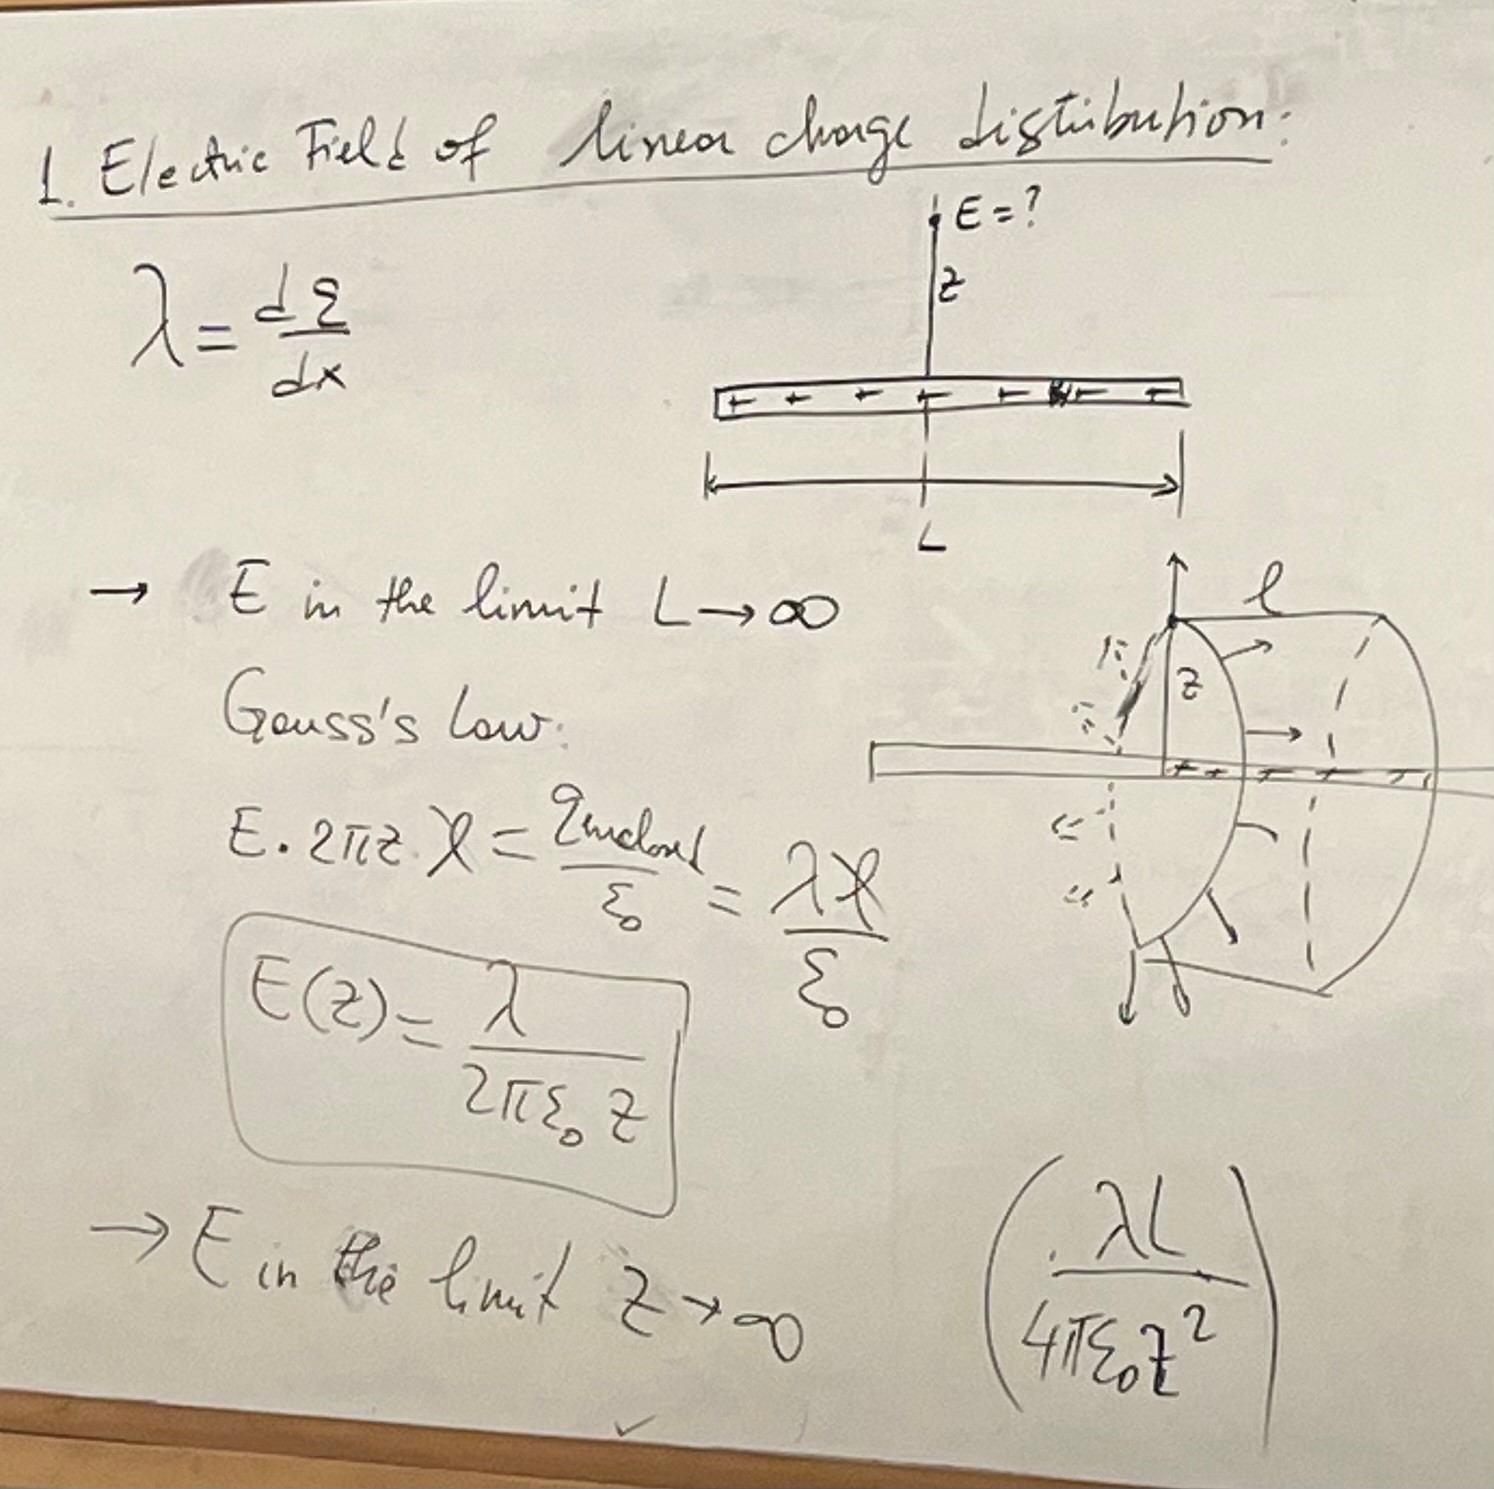 1. Electric Field of linear charge distribution:
E = ?
λ = dq/dx
z
L
→ E in the limit L → ∞
l
z
Gauss's Law:
E · 2πz · l = q enclosed/ε₀ = λl/ε₀
E(z) = λ/2πε₀z
→ E in the limit z → ∞
(λL/4πε₀z²)